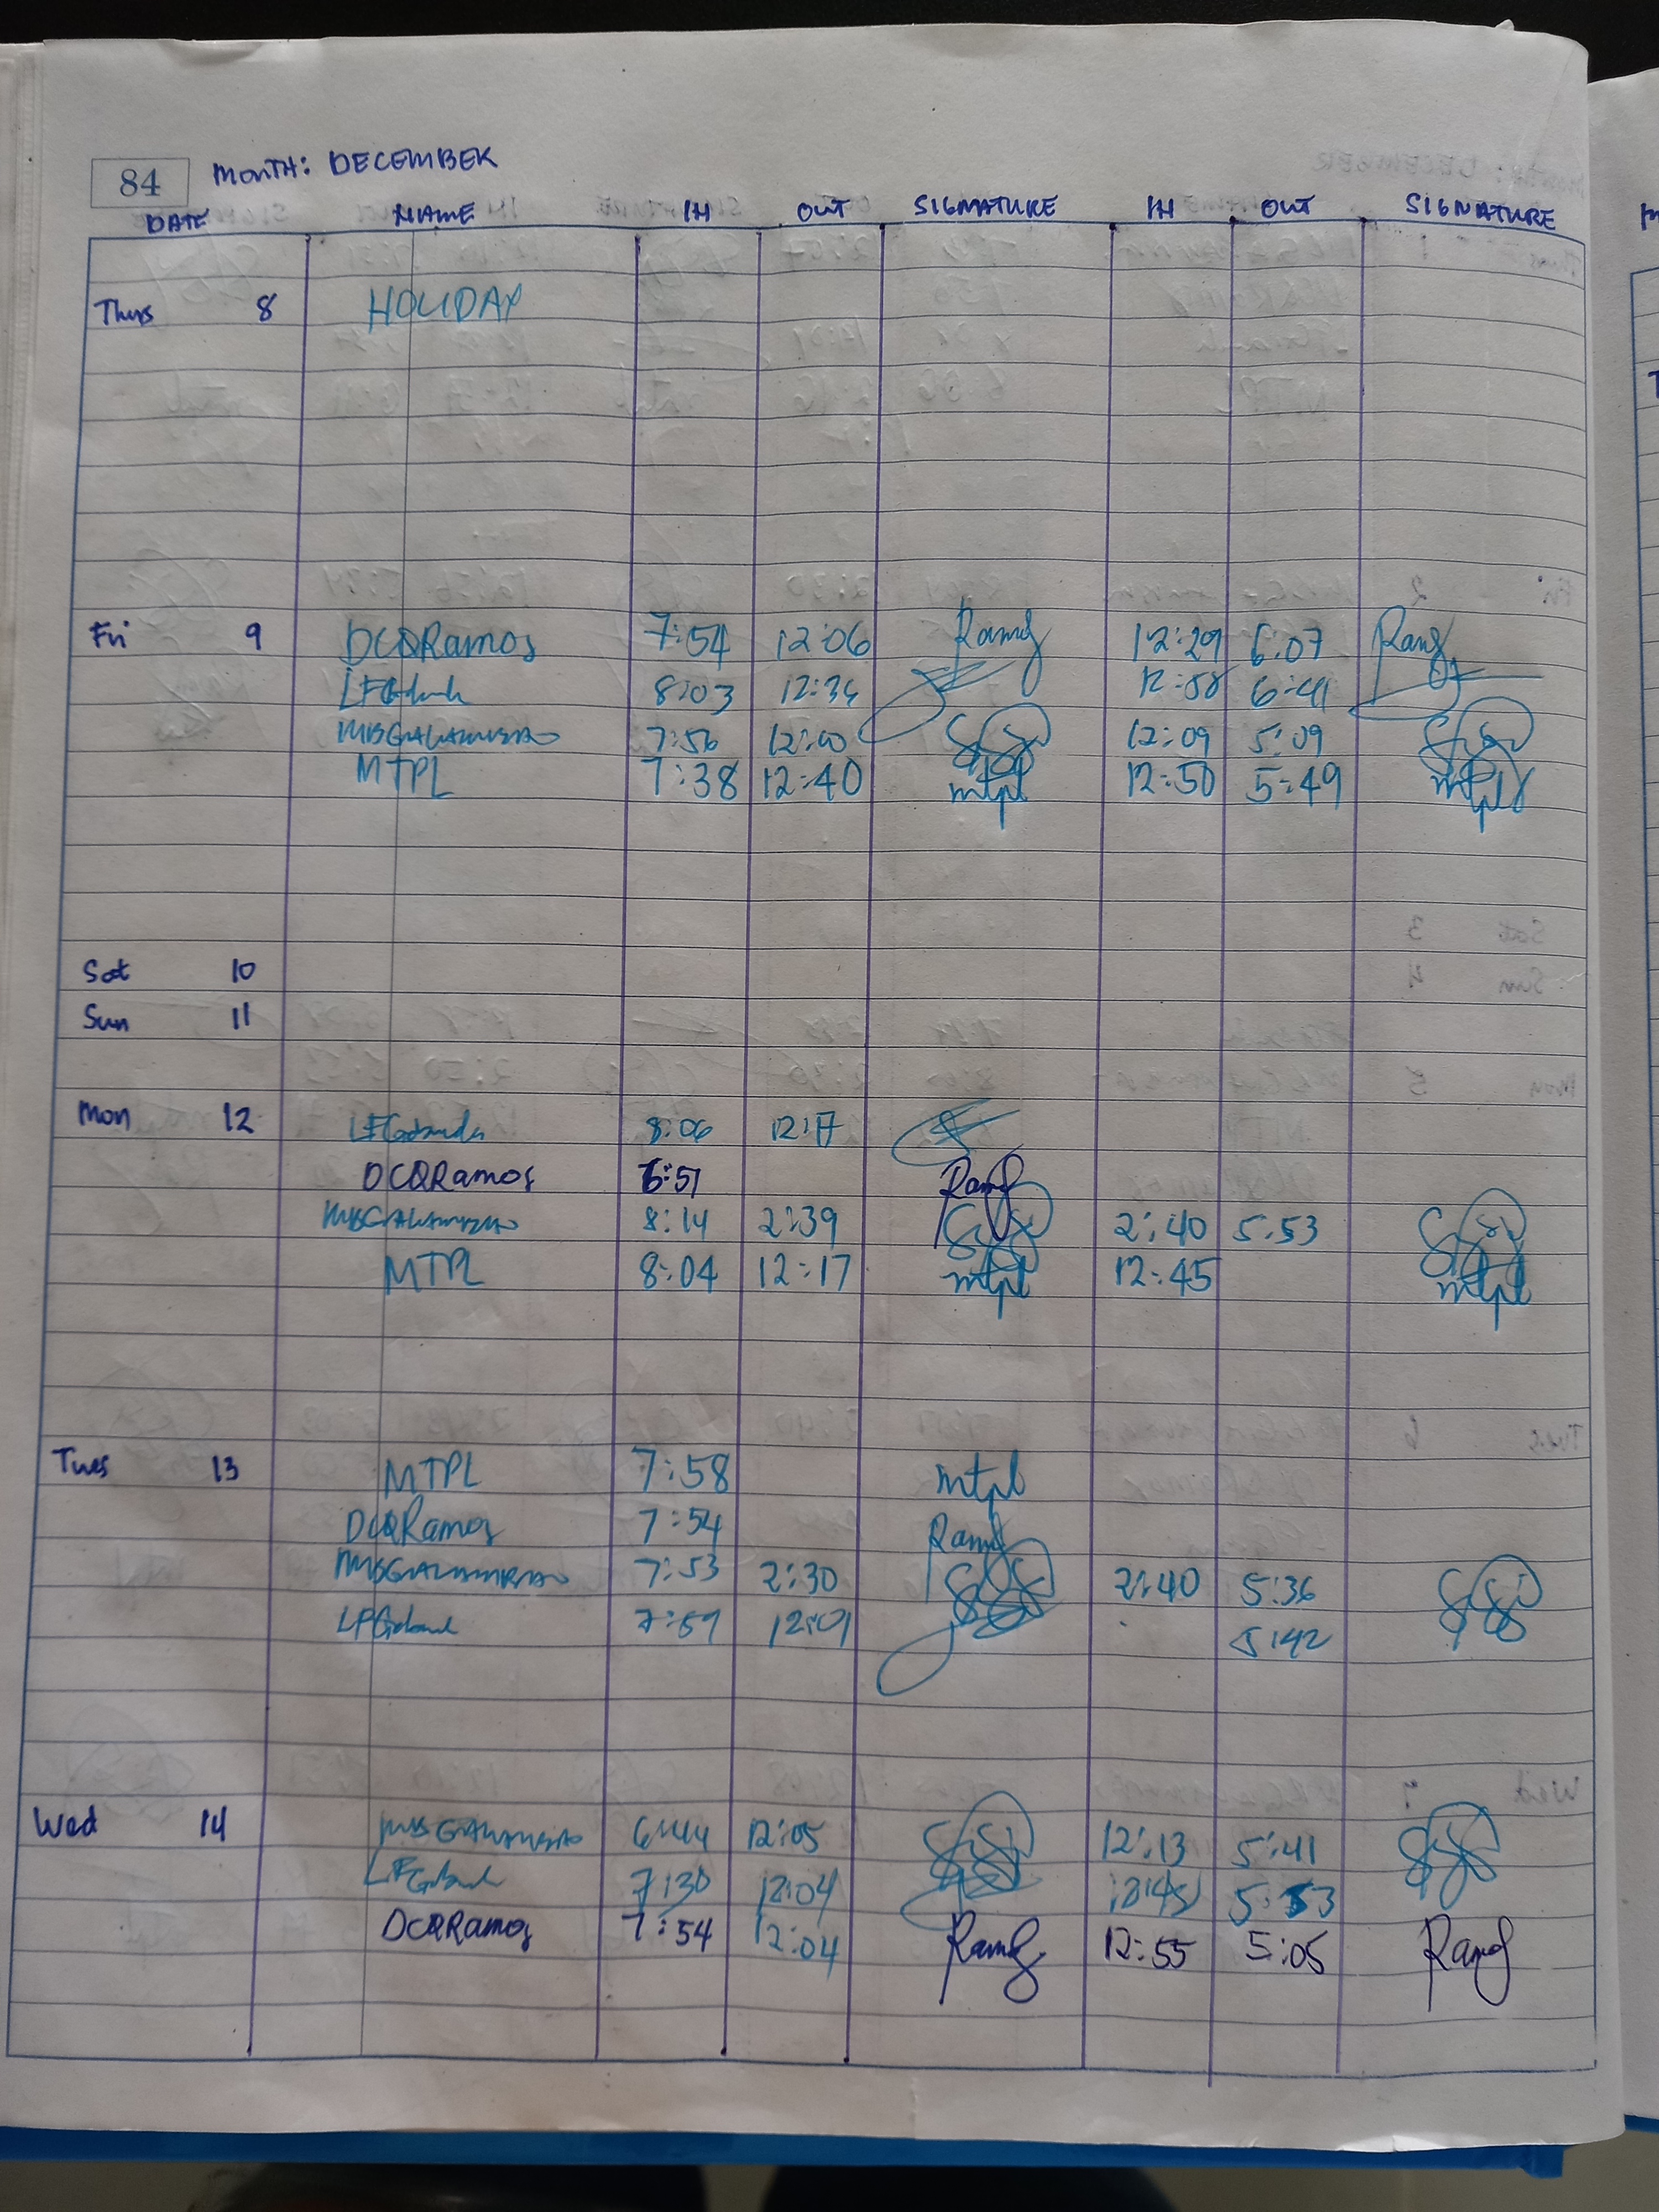 84 MONTH: DECEMBER
DATE NAME IN OUT SIGNATURE IN OUT SIGNATURE
Thurs 8 HOLIDAY
Fri 9 DCQRamos 7:54 12:06 12:29 6:07
8:03 12:34 12:58 6:41
7:56 12:00 12:09 5:09
MTPL 7:38 12:40 mtpl 12:50 5:49 mtpl
Sat 10
Sun 11
Mon 12 8:06 12:17
DCQRamos 6:51
8:14 2:39 2:40 5:53
MTPL 8:04 12:17 mtpl 12:45 mtpl
Tues 13 MTPL 7:58 mtpl
DCQRamos 7:54
7:53 2:30 2:40 5:36
7:59 12:01 5:42
Wed 14 6:44 12:05 12:13 5:41
7:30 12:04 12:45 5:53
DCQRamos 7:54 12:04 12:55 5:05